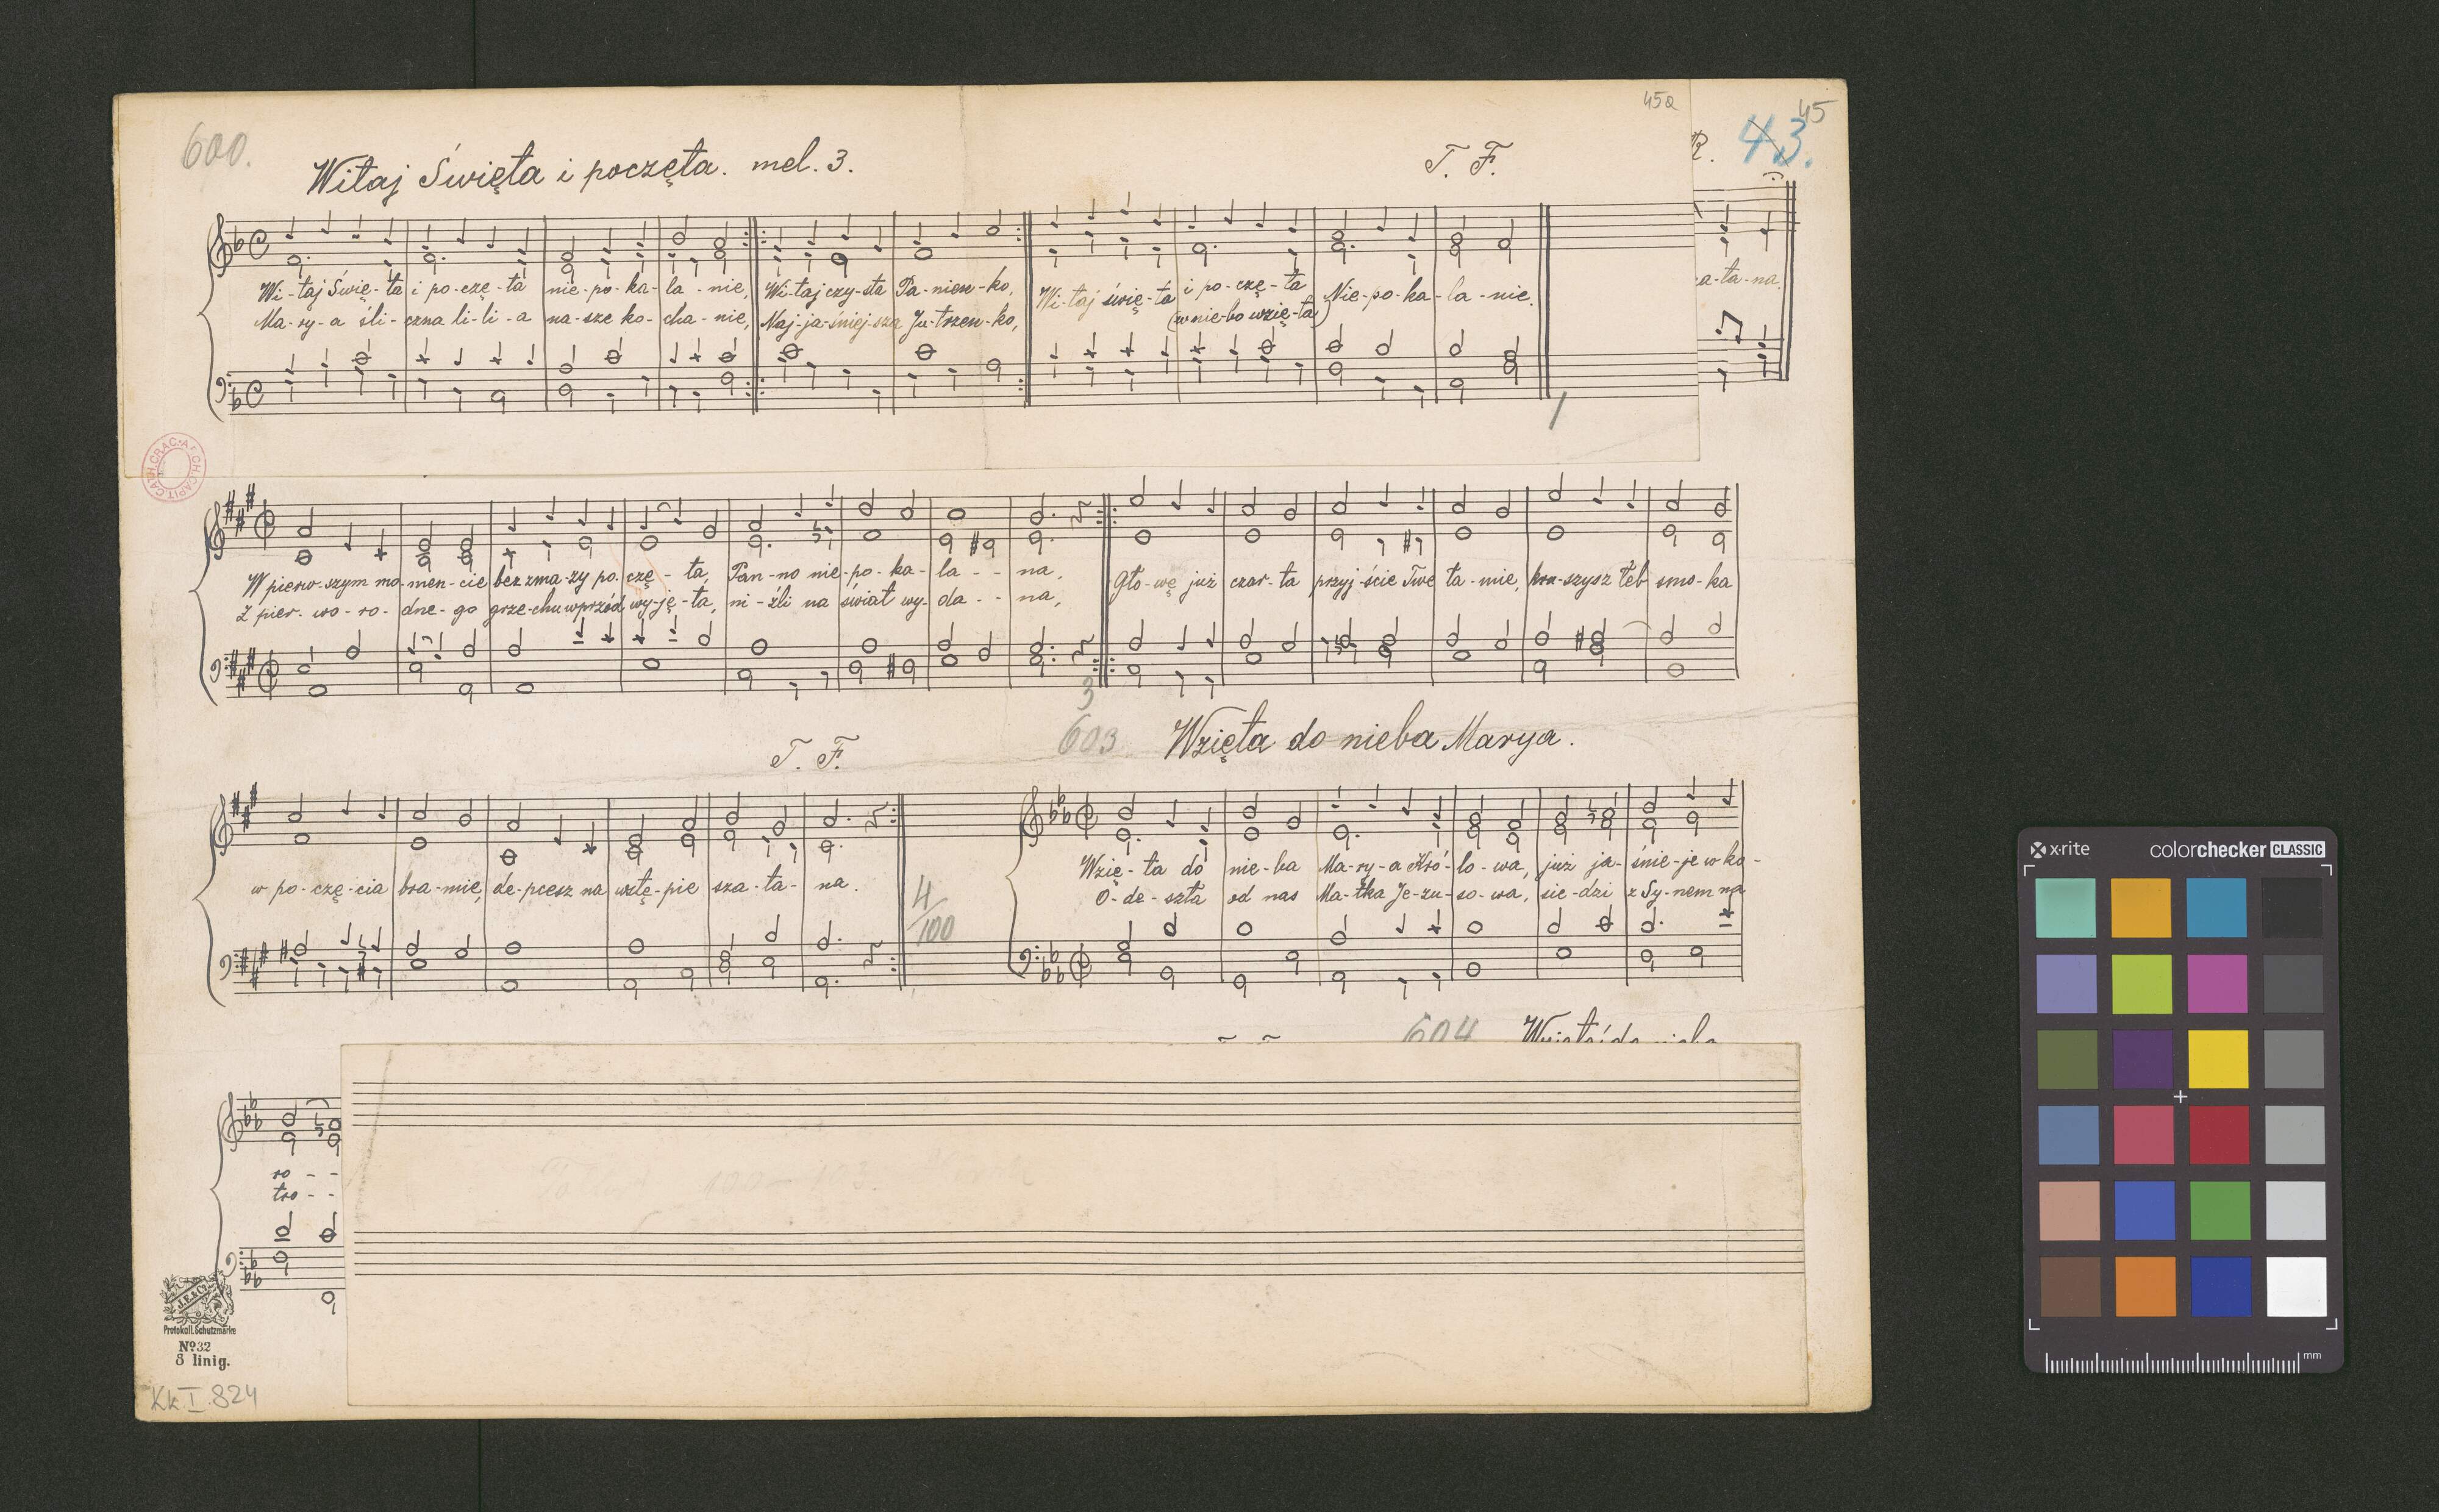 45a
45
600.
Witaj Święta i poczęta. mel. 3.
T. F.
R.
43.
Wi-taj Świę-ta i po-czę-ta nie-po-ka-la-nie, Wi-taj czy-sta Pa-nien-ko, Wi-taj świę-ta i po-czę-ta Nie-po-ka-la-nie.
Ma-ry-a śli-czna li-li-a na-sze ko-cha-nie, Naj-ja-śniej-sza Ju-trzen-ko, (w nie-bo wzię-ta)
a-ta-na.
W pierw-szym mo-men-cie bez zma-zy po-czę-ta, Pan-no nie-po-ka-la-na, Gło-wę już czar-ta przyj-ście Twe ta-mie, kru-szysz łeb smo-ka
Z pier-wo-ro-dne-go grze-chu wprzód wy-ję-ta, ni-źli na świat wy-da-na,
3
603
Wzięta do nieba Marya.
T. F.
w po-czę-cia bra-mie, de-pcesz na wstę-pie sza-ta-na.
4/100
Wzię-ta do nie-ba Ma-ry-a Kró-lo-wa, już ja-śnie-je w ko-
O-de-szła od nas Ma-tka Je-zu-so-wa, sie-dzi z Sy-nem na
604
ro--
tro--
J.E.&Co.
Protokoll. Schutzmarke
No 32
8 linig.
Kk I.824
x-rite
colorchecker CLASSIC
mm